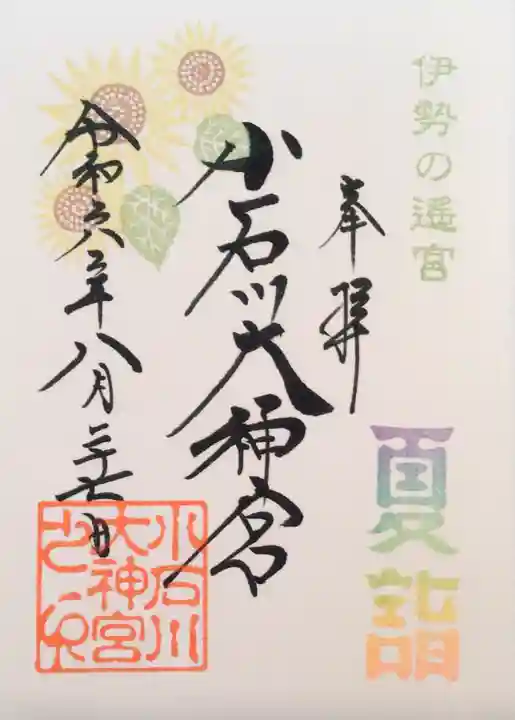 伊勢の遙宮
夏詣
奉拝
小石川大神宮
令和六年八月二十六日
小石川
大神宮